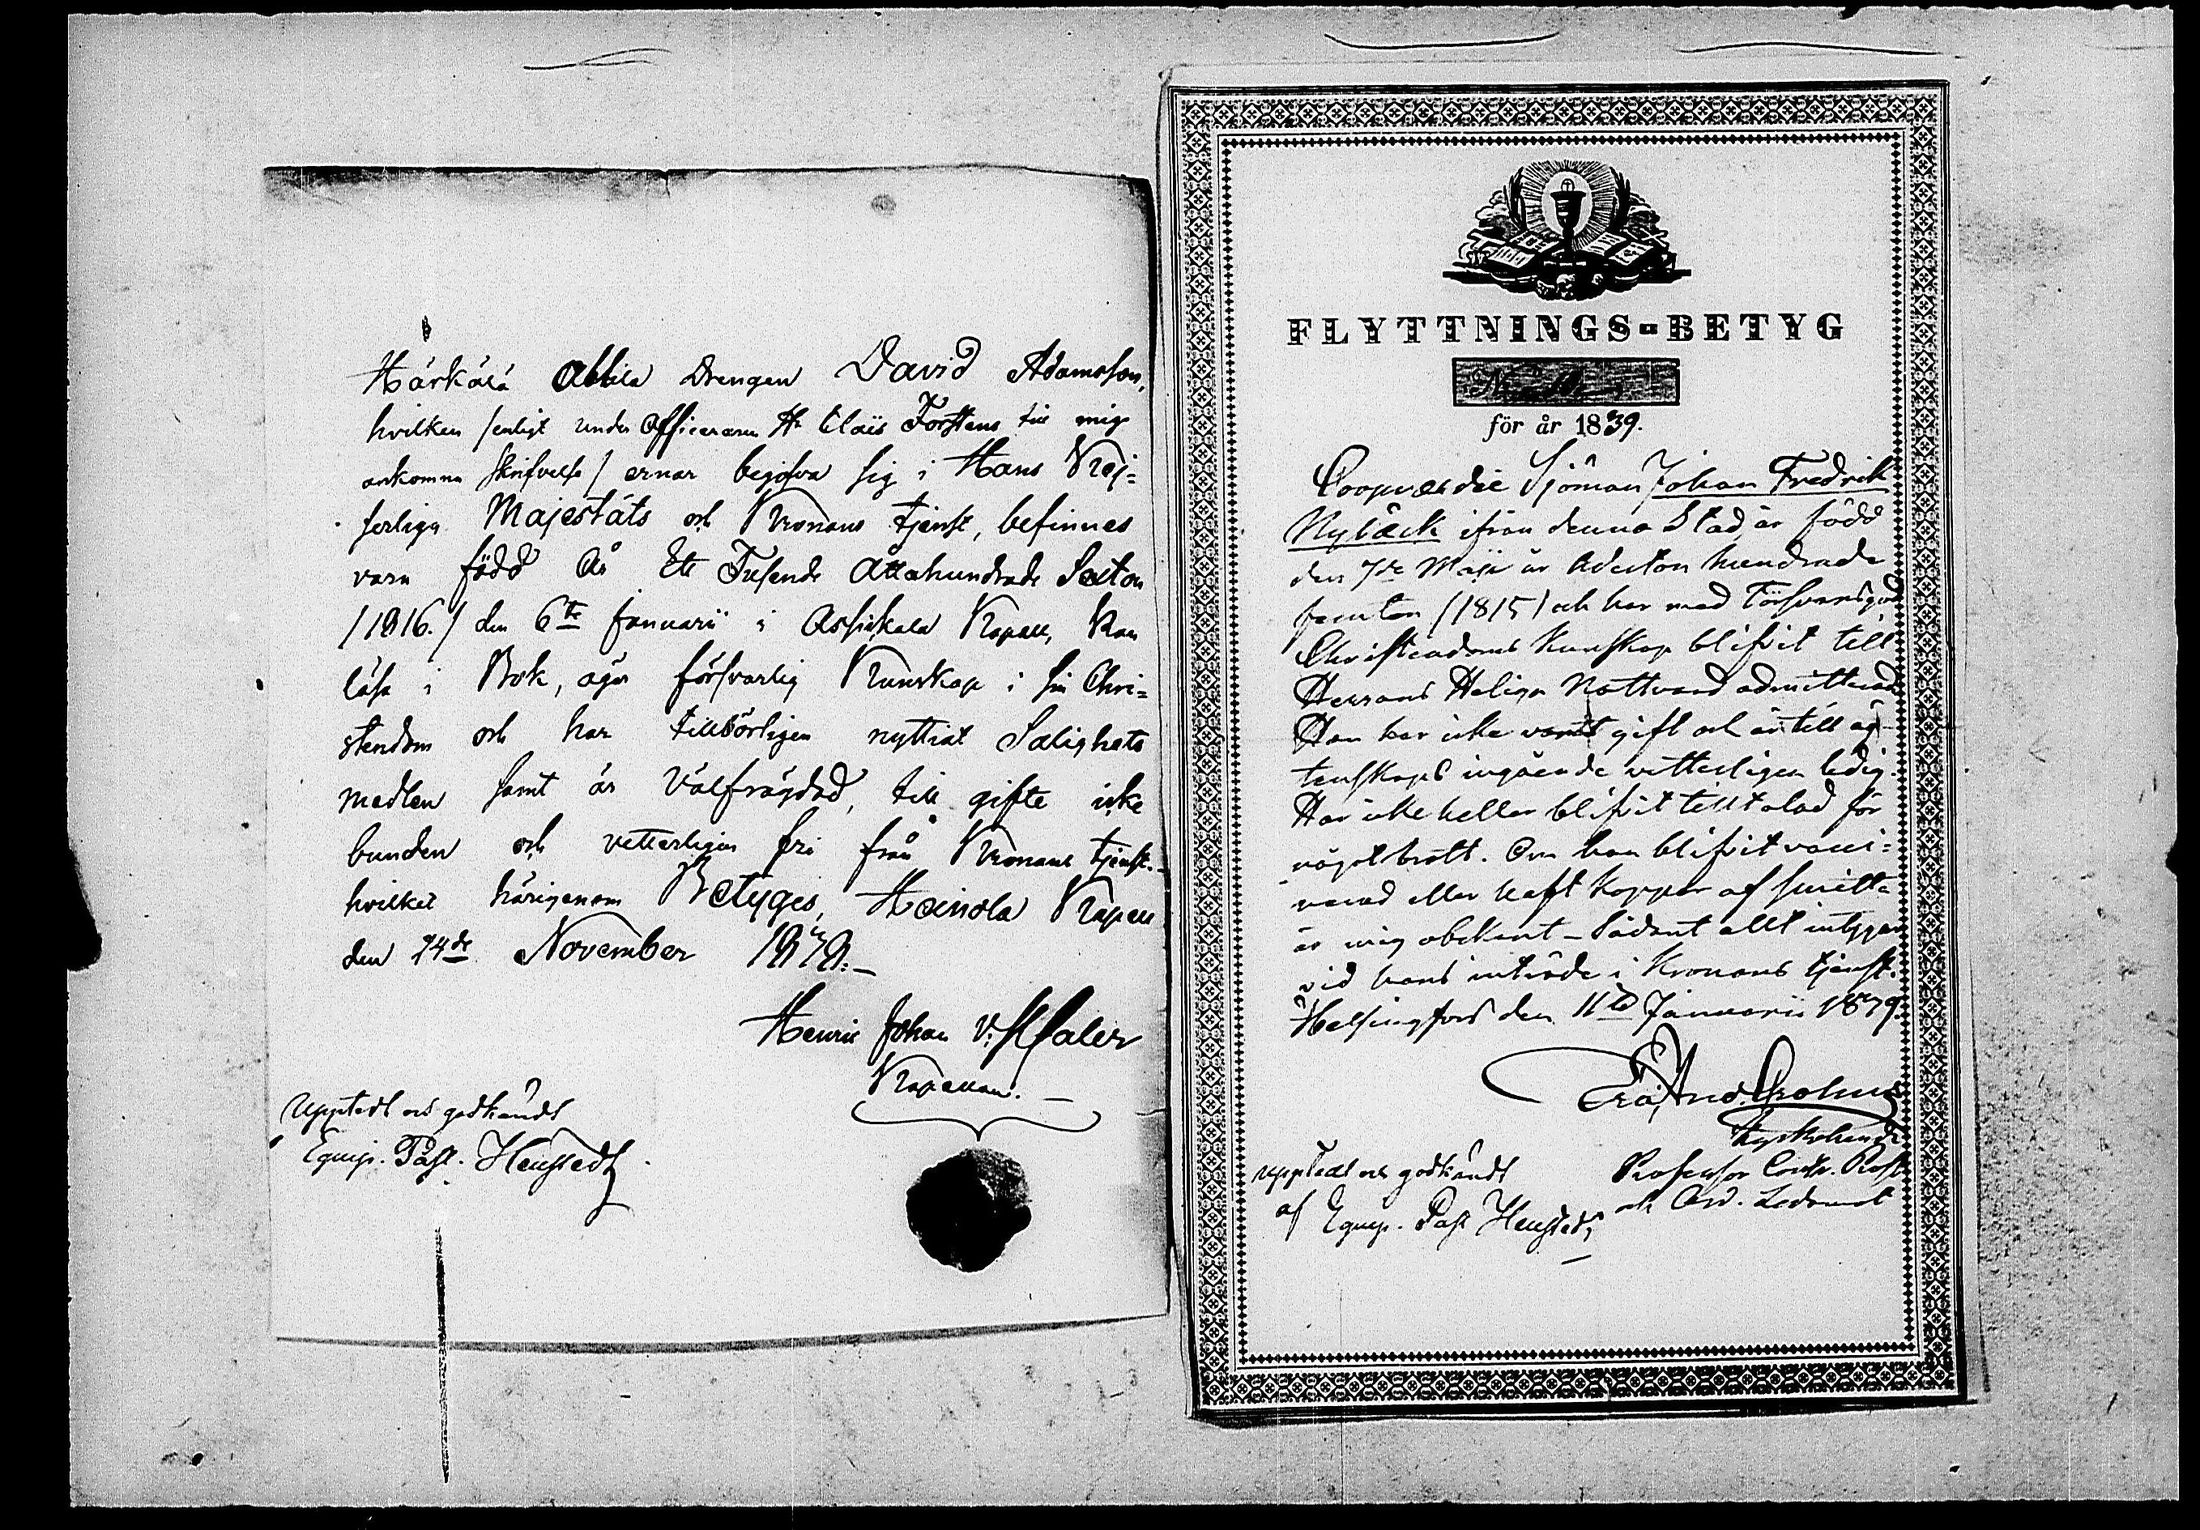 Härkälä Attila Drengen David Adamsson,
hvilken /enligt under Officeraren Hr Claës Forstens till mig
ankomna skrifvelse/ ernar begifva sig i Hans Kej-
serliga Majestäts och Kronans tjenst, befinnes
vara född År Ett Tusende Åttahundrade Sexton
/1816./ den 6te Januarii i Assikala Kapell, kan
läsa i Bok, äger försvarlig Kunskap i sin Chri-
stendom och har tillbörligen nyttjat Salighets
medlen samt är välfrägdad, till gifte icke
bunden och vetterligen fri från Kronans tjenst.
hvilket härigenom Betygas, Heinola Kapell
den 14de November 1838.
Henric Johan
Kapellan.
Upptedt och godkändt
Equip. Past. Henstedt
FLYTTNINGS-BETYG
för år 1839.
Coopværdie Sjöman Johan Fredrik
Nybäck ifrån denna Stad, är född
den 7de Maji år Aderton hundrade
femton (1815) och har med Försvarsgod
Christendoms kunskap blifvit till
Herrans Heliga Nattvard admitterad
Han har icke varit gift och är till äg-
tenskaps ingående vitterligen ledig.
Har icke heller blifvit tilltalad för
något brott. Om han blifvit vacci-
nerad eller haft koppor af smitta
är mig obekant – Sådant allt intygas
vid hans inträde i Kronans tjenst.
Helsingfors den 11te Januarii 1839.
Kyrkoherde
Professor Cons. Prost
och Ord. Ledamot
Upptedt och godkändt
af Equip. Past Henstedt